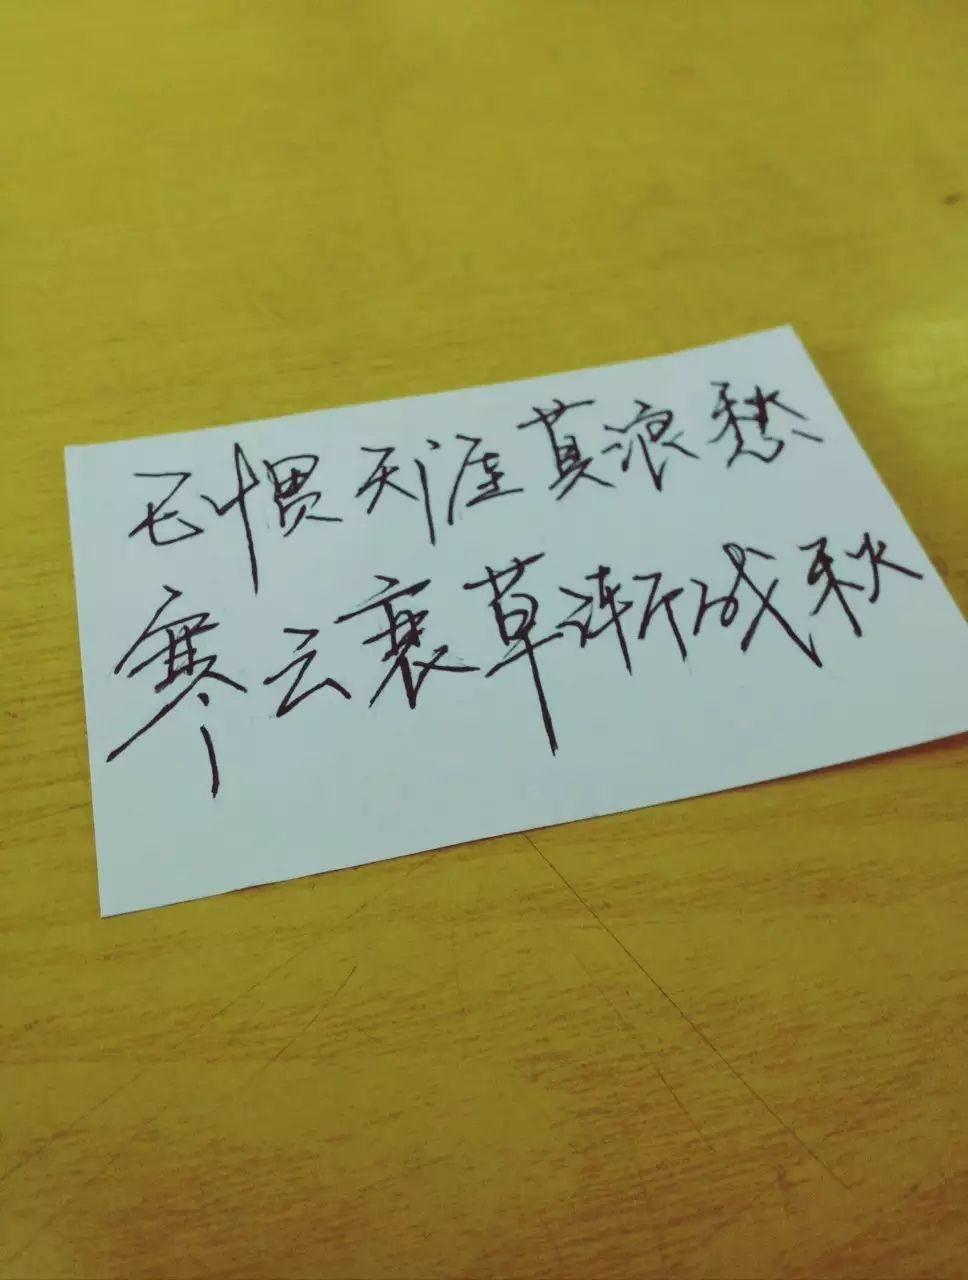 已惯天涯莫浪愁
寒云衰草渐成秋